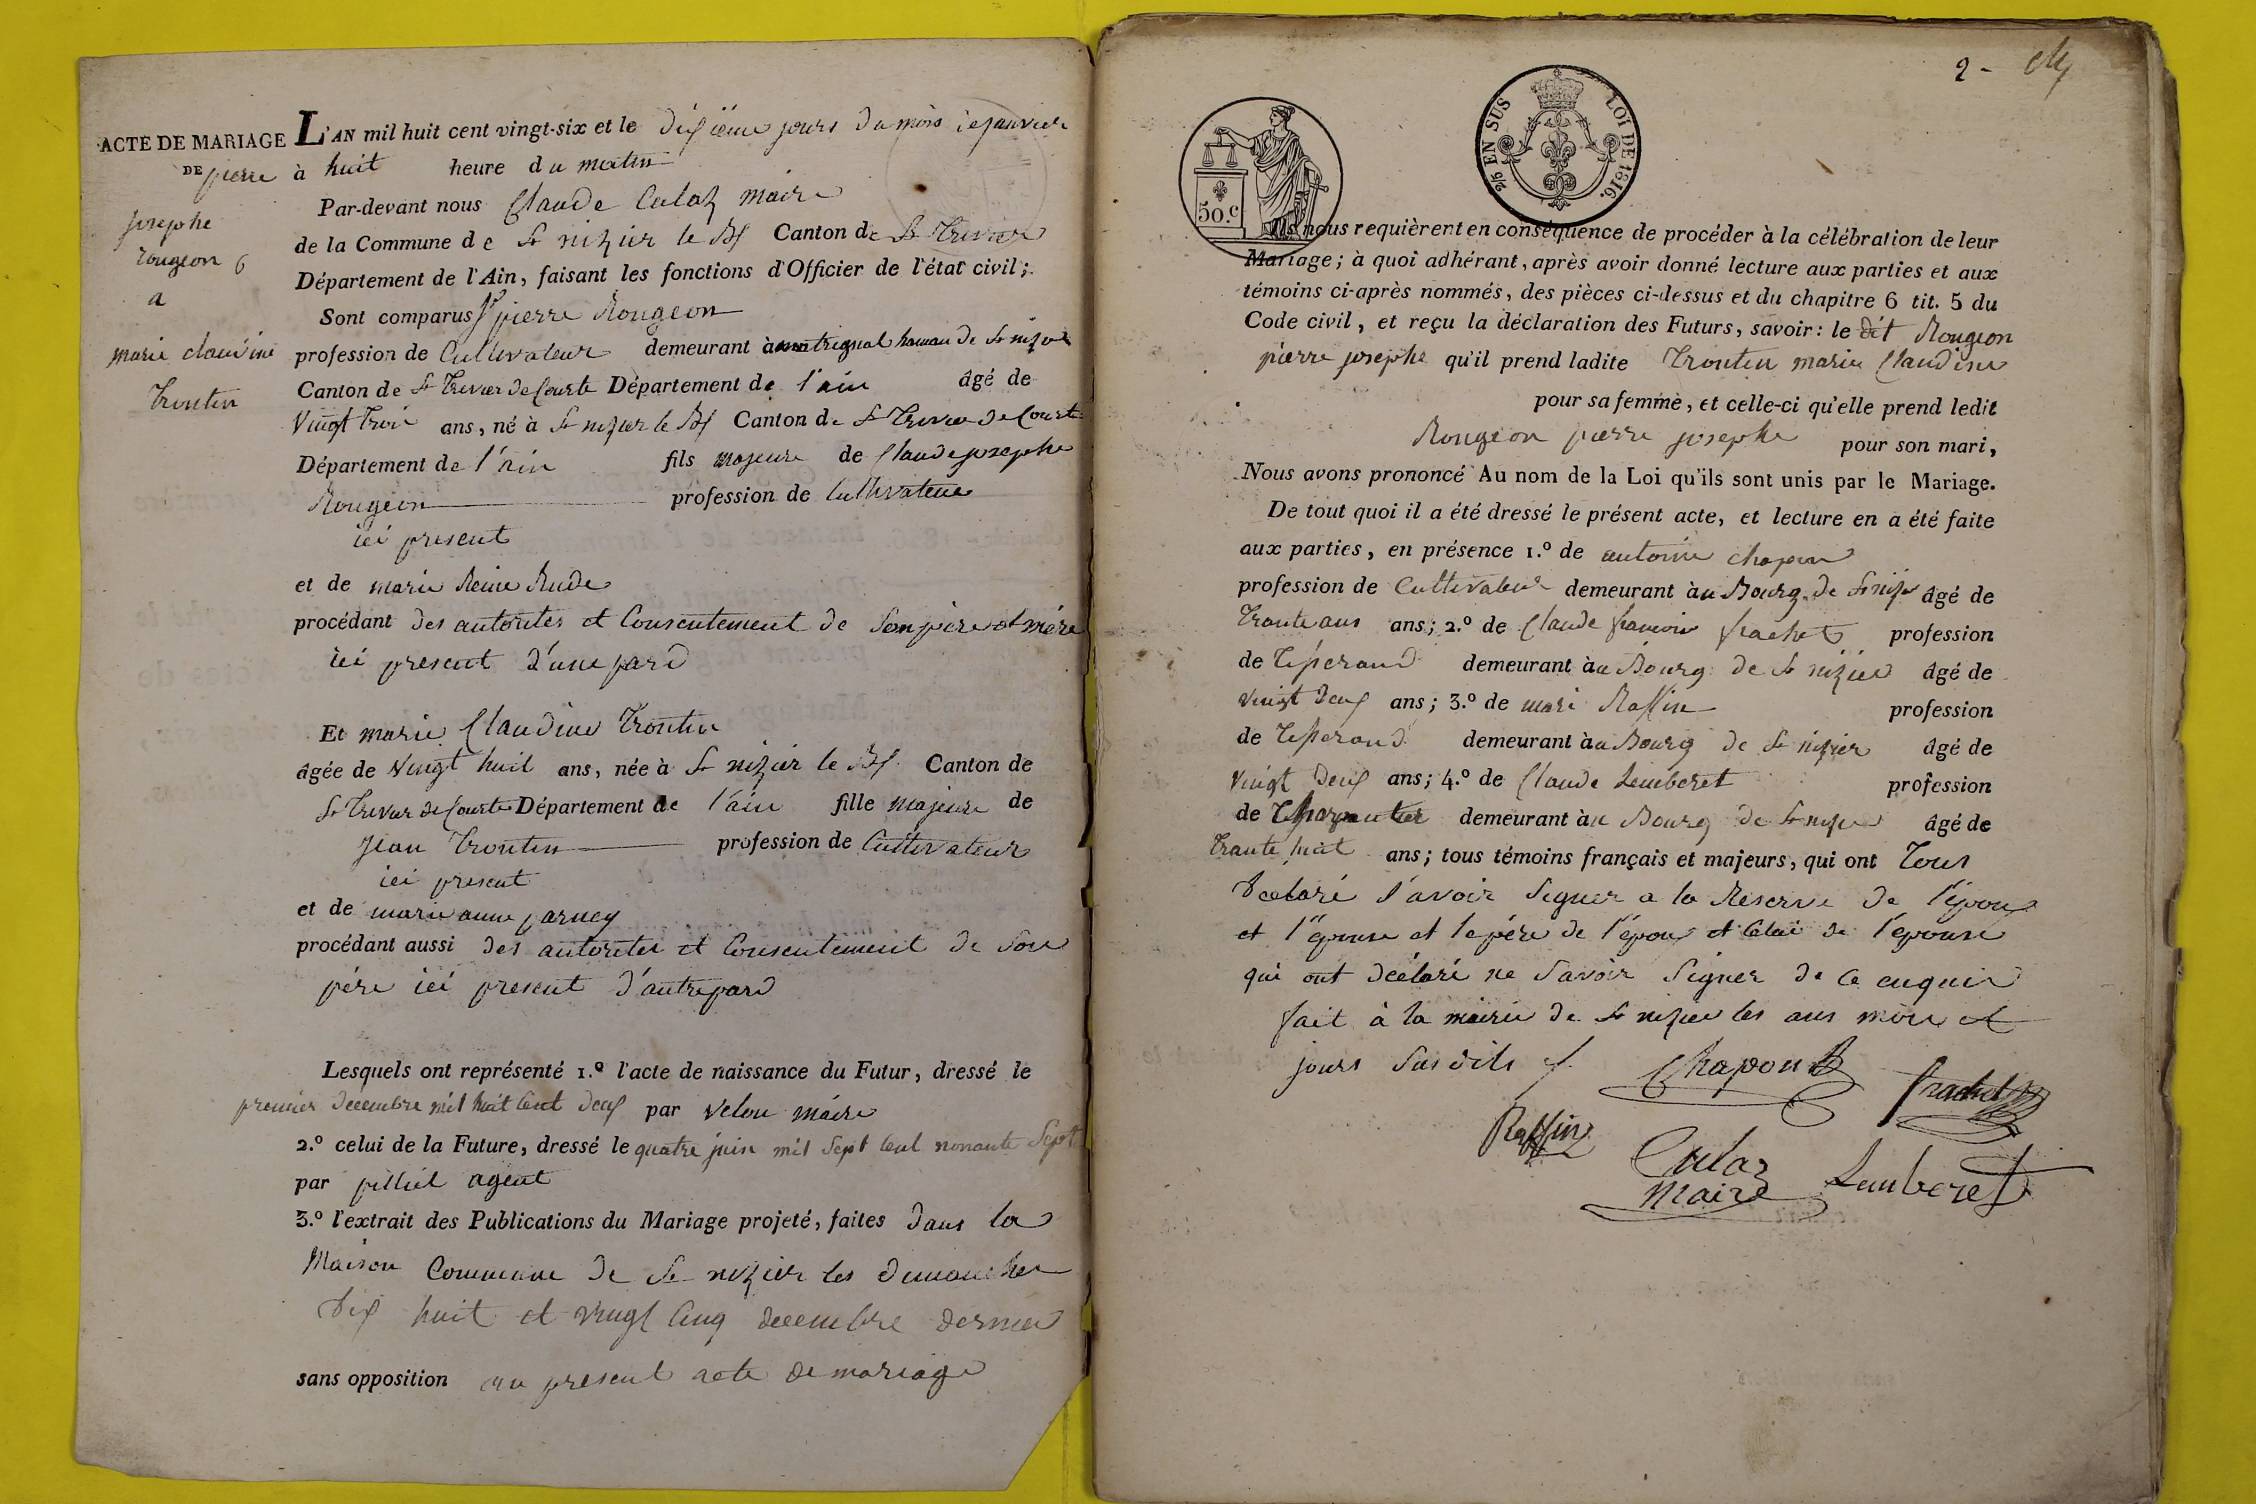 ACTE DE MARIAGE
DE pierre
josephe
rougeon 6
a
marie claudine
Trontin
L'AN mil huit cent vingt-six et le dixième jours du mois de janvier
à huit heure du matin
Par-devant nous Claude Calaz maire
de la Commune de St nizier le Bt Canton de St Trivier
Département de l'Ain, faisant les fonctions d'Officier de l'état civil;
Sont comparus pierre Rougeon
profession de Cultivateur demeurant à hamau de St nizier
Canton de St Trivier de Courte Département de l'ain âgé de
Vingt trois ans, né à St nizier le Bt Canton de St Trivier de Courte
Département de l'ain fils majeure de Claude josephe
Rougeon profession de Cultivateur
ici present
et de marie Reine Rude
procédant des autorites et Consentement de son père et mère
ici present d'une pard
Et marie Claudine Trontin
âgée de Vingt huit ans, née à St nizier le Bt Canton de
St Trivier de Courte Département de l'ain fille majeure de
Jean Trontin profession de Cultivateur
ici present
et de marie anne parney
procédant aussi des autorites et Consentement de son
père ici present d'autre pard
Lesquels ont représenté 1.º l'acte de naissance du Futur, dressé le
premier decembre mil huit Cent deux par Velon maire
2.º celui de la Future, dressé le quatre juin mil Sept Cent nonante Sept
par agent
3.º l'extrait des Publications du Mariage projeté, faites dans la
Maison Commune de St nizier les dimanches
dix huit et vingt Cinq decembre dernier
sans opposition au present acte de mariage
2 -
50.C
2/5 EN SUS LOI DE 1816.
Ils nous requièrent en conséquence de procéder à la célébration de leur
Mariage; à quoi adhérant, après avoir donné lecture aux parties et aux
témoins ci-après nommés, des pièces ci-dessus et du chapitre 6 tit. 5 du
Code civil, et reçu la déclaration des Futurs, savoir: le dit Rougeon
pierre josephe qu'il prend ladite Trontin marie Claudine
pour sa femme, et celle-ci qu'elle prend ledit
Rougeon pierre josephe pour son mari,
Nous avons prononcé Au nom de la Loi qu'ils sont unis par le Mariage.
De tout quoi il a été dressé le présent acte, et lecture en a été faite
aux parties, en présence 1.º de antoine chapon
profession de Cultivateur demeurant àu Bourg de St nizier âgé de
Trante ans ans; 2.º de Claude francois frachet profession
de Tisserand demeurant àu Bourg de St nizier âgé de
vingt deux ans; 3.º de mari Raffin profession
de Tisserand demeurant àu Bourg de St nizier âgé de
Vingt deux ans; 4.º de Claude Lemberet profession
de Charpantier demeurant àu Bourg de St nizier âgé de
Trante huit ans; tous témoins français et majeurs, qui ont Tous
declaré Savoir Signer a la Reserve de l'époux
et l'épouse et le père de l'époux et Celui de l'épouse
qui ont déclaré ne Savoir Signer de Ce enquis
fait à la mairie de St nizier les ans mois et
jours Susdits
Chapon
frachet
Raffin
Calaz
Maire
Lemberet